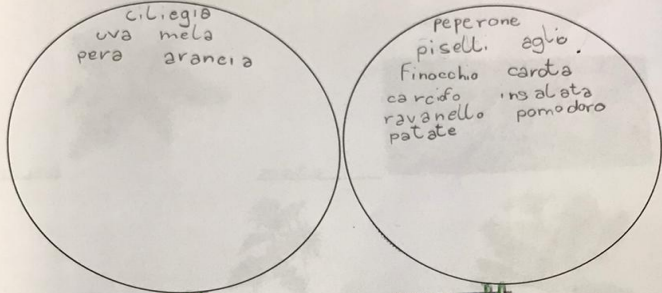 ciliegia
uva mela
pera arancia
peperone
piselli aglio.
Finocchio carota
carciofo insalata
ravanello pomodoro
patate